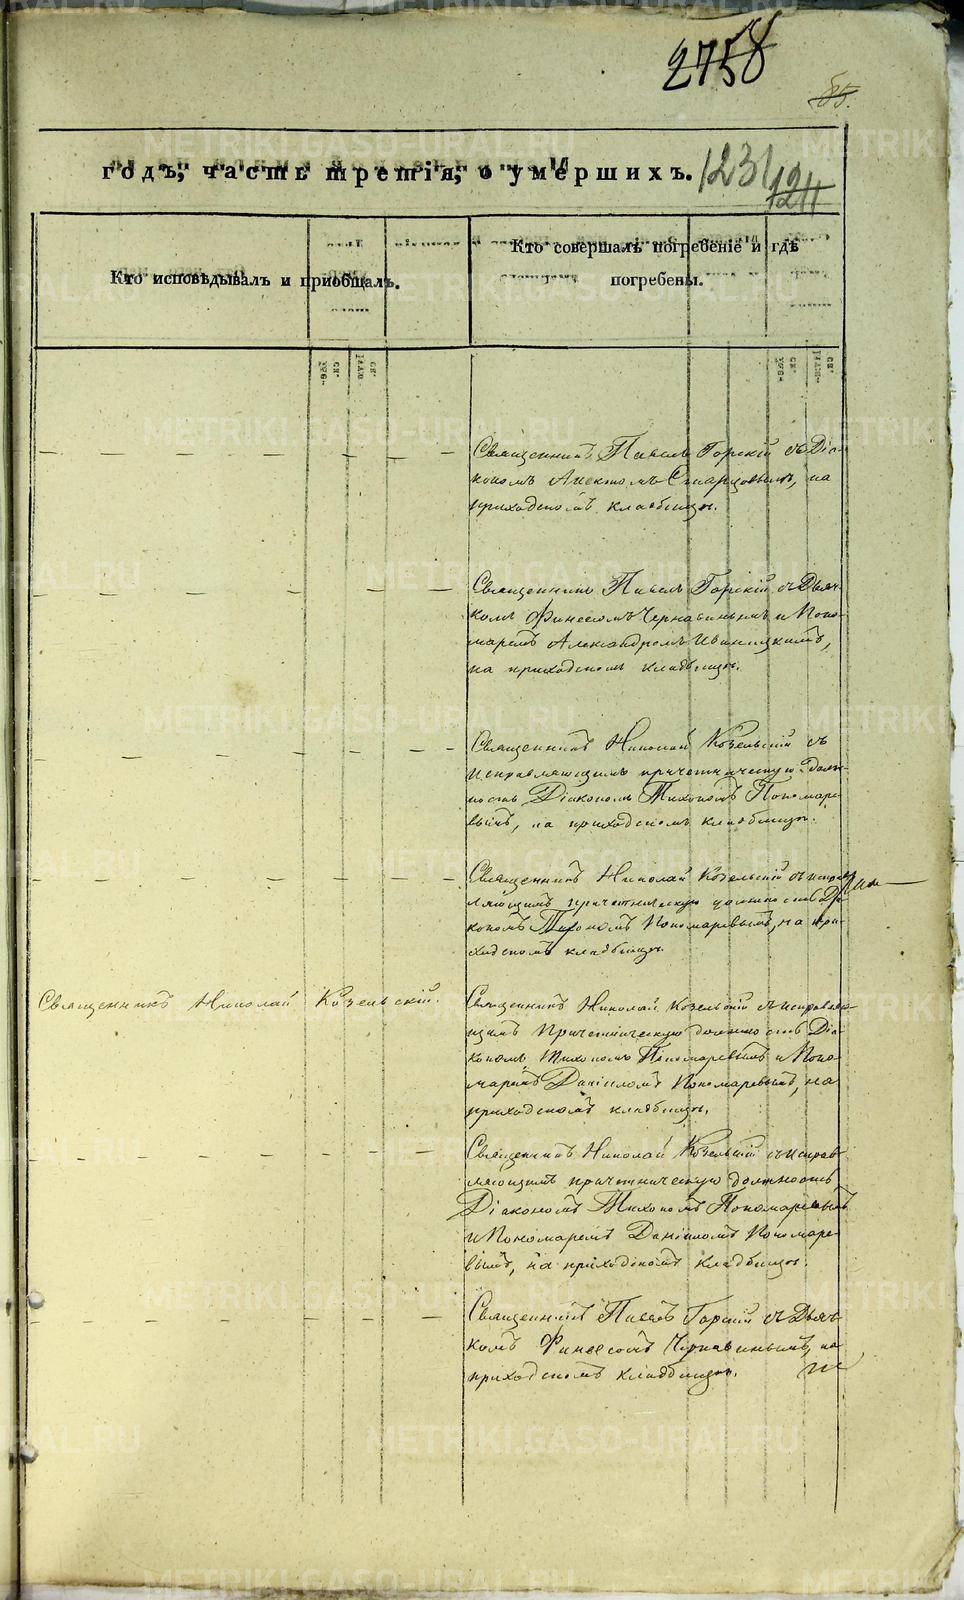 2758
85.
годъ, часть третія, о умершихъ.
1231
1211
Кто исповѣдывалъ и пріобщалъ.
Кто совершалъ погребеніе и гдѣ
погребены.
Священникъ Павелъ Горскій съ Діа-
кономъ, на
приходскомъ кладбищѣ.
Священникъ Павелъ Горскій съ Дьяч-
комъ Финеесомъ Чернавинымъ и Поно-
маремъ Александромъ Иваницкимъ,
на приходскомъ кладбищѣ.
Священникъ Николай Козельскій съ
исправляющимъ причетническую долж-
ность Діакономъ Тихономъ Пономаре-
вымъ, на приходскомъ кладбищѣ.
Священникъ Николай Козельскій съ исправ-
ляющимъ причетническую должность Діа-
кономъ Тихономъ Пономаревымъ, на при-
ходскомъ кладбищѣ.
Священникъ Николай Козельскій.
Священникъ Николай Козельскій съ исправляю-
щимъ Причетническую должность Діа-
кономъ Тихономъ Пономаревымъ и Поно-
маремъ Даніиломъ Пономаревымъ, на
приходскомъ кладбищѣ.
Священникъ Николай Козельскій съ исправ-
ляющимъ причетническую должность
Діакономъ Тихономъ Пономаревымъ
и Пономаремъ Даніиломъ Пономаре-
вымъ, на приходскомъ кладбищѣ.
Священникъ Павелъ Горскій съ Дьяч-
комъ Финеесомъ Чернавинымъ, на
приходскомъ кладбищѣ.
METRIKI.GASO-URAL.RU